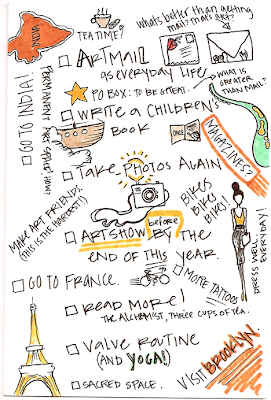 INDIA
TEA TIME?
WHAT'S BETTER THAN GETTING
MAIL? MAIL ART?
ARTMAIL
AS EVERYDAY LIFE
PO BOX: TO BE GREAT.
WHAT IS
GREATER
THAN MAIL?
GO TO INDIA!
WRITE A CHILDREN'S
BOOK
MAGAZINES?
TAKE PHOTOS AGAIN
MAKE ART FRIENDS.
(THIS IS THE HARDEST!)
BIKES
BIKES
BIKES!
before
ART SHOW BY THE
END OF THIS YEAR.
DRESS WELL. EVERYDAY!
GO TO FRANCE.
MORE TATTOOS
READ MORE!
THE ALCHEMIST, THREE CUPS OF TEA.
VALUE ROUTINE
(AND YOGA!)
VISIT BROOKLYN.
SACRED SPACE.